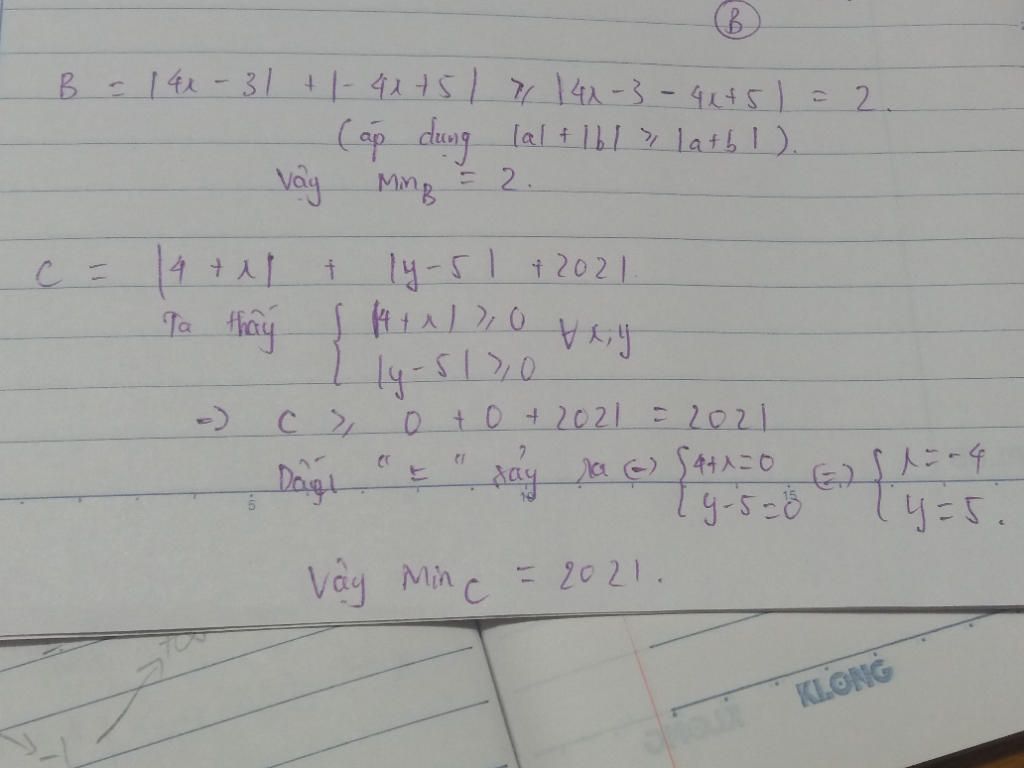 B
B = |4x - 3| + |-4x + 5| ⩾ |4x - 3 - 4x + 5| = 2.
(áp dụng |a| + |b| ⩾ |a+b|).
Vậy Min_B = 2.
C = |4 + x| + |y - 5| + 2021
Ta thấy { |4 + x| ⩾ 0 ∀x,y
|y - 5| ⩾ 0
=> C ⩾ 0 + 0 + 2021 = 2021
Dấu "=" xảy ra (=) { 4+x=0 (=) { x = -4
y-5=0 y = 5.
5 10 15
Vậy Min_C = 2021.
-1
KLONG
KLONG